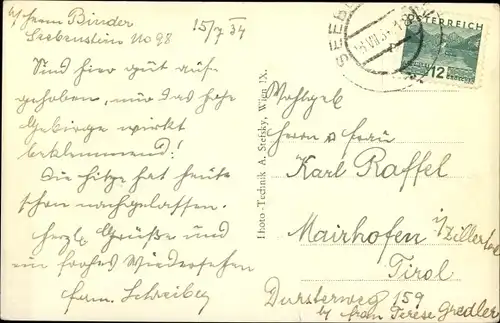 b/ Herrn Binder
Seebenstein No 98
15/7 34
Sind hier gut auf-
gehoben, nur das hohe
Gebirge wirkt
beklemmend!
Die Hitze hat heute
schon nachgelassen.
Herzl. Grüße und
ein frohes Wiedersehen
Fam. Schreiber
Photo-Technik A. Stefsky, Wien IX.
SEEBE
ÖSTERREICH
12
Wohlgeb.
Herrn u Frau
Karl Raffel
Mairhofen i/Zillertal
Tirol
Dursterweg 159
by Frau Terese Gredler